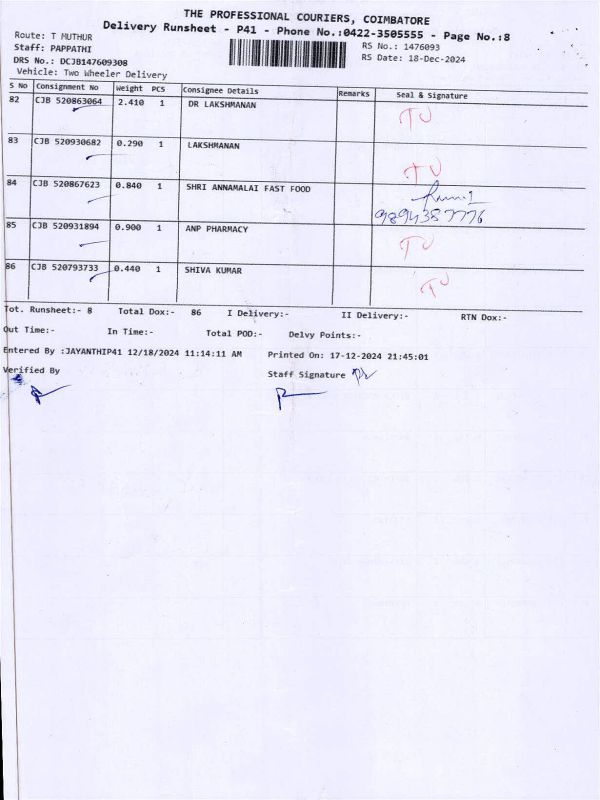 THE PROFESSIONAL COURIERS, COIMBATORE
Delivery Runsheet - P41 - Phone No.:0422-3505555 - Page No.:8
Route: T MUTHUR
RS No.: 1476093
Staff: PAPPATHI
RS Date: 18-Dec-2024
DRS No.: DCJB147609308
Vehicle: Two Wheeler Delivery
S No Consignment No Weight PCS Consignee Details Remarks Seal & Signature
82 CJB 520863064 2.410 1 DR LAKSHMANAN TU
83 CJB 520930682 0.290 1 LAKSHMANAN TU
84 CJB 520867623 0.840 1 SHRI ANNAMALAI FAST FOOD
85 CJB 520931894 0.900 1 ANP PHARMACY TU
86 CJB 520793733 0.440 1 SHIVA KUMAR TU
Tot. Runsheet:- 8 Total Dox:- 86 I Delivery:- II Delivery:- RTN Dox:-
Out Time:- In Time:- Total POD:- Delvy Points:-
Entered By :JAYANTHIP41 12/18/2024 11:14:11 AM Printed On: 17-12-2024 21:45:01
Verified By Staff Signature